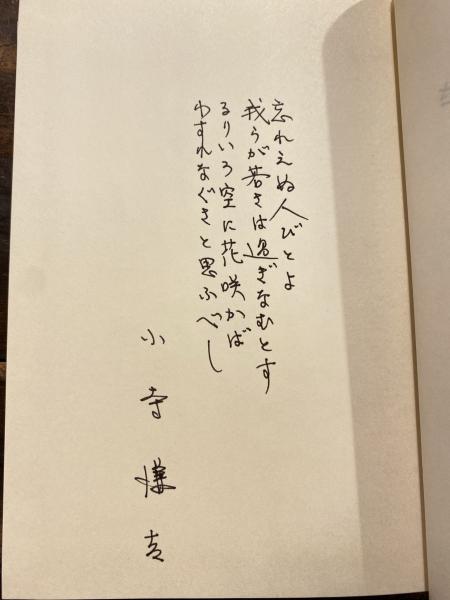 忘れえぬ人びとよ
我らが若さは過ぎなむとす
るりいろ空に花咲かば
わすれなぐさと思ふべし
小寺